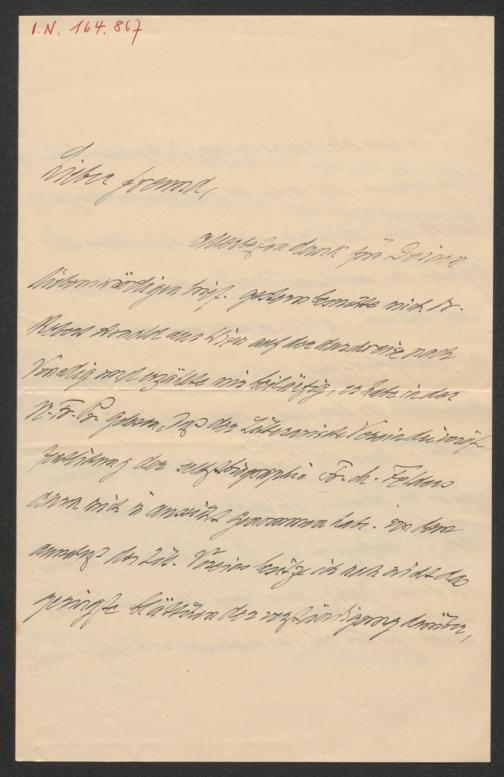 I.N. 164.867
Lieber Freund,
Herzlichen Dank für Deinen
liebenswürdigen Brief. Gestern besuchte mich Dr.
Robert Arnold aus Wien auf der Durchreise nach
Venedig und erzählte mir beiläufig, er habe in der
N. Fr. Pr. gelesen, daß der Literarische Verein die
der Selbstbiographie Fr. M. Felders
durch mich in Aussicht genommen habe. Von dem
des Lit. Vereins besitze ich noch nicht die
geringste der Verständigung darüber,